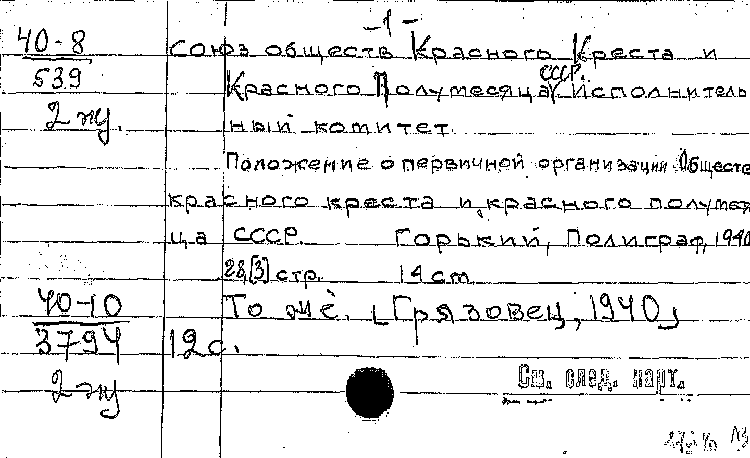 -1-
40-8 союз обществ Красного Креста и
539 Красного Полумесяца СССР. Исполнитель
2 эку. ный комитет.
Положение о первичной организации Обществ
красного креста и красного полумеся
ца СССР. Горький, Полиграф, 1940
28,[3] стр. 14 cm
40-10 То же. [Грязовец, 1940]
3794 12с.
2 эку
См. след. карт.